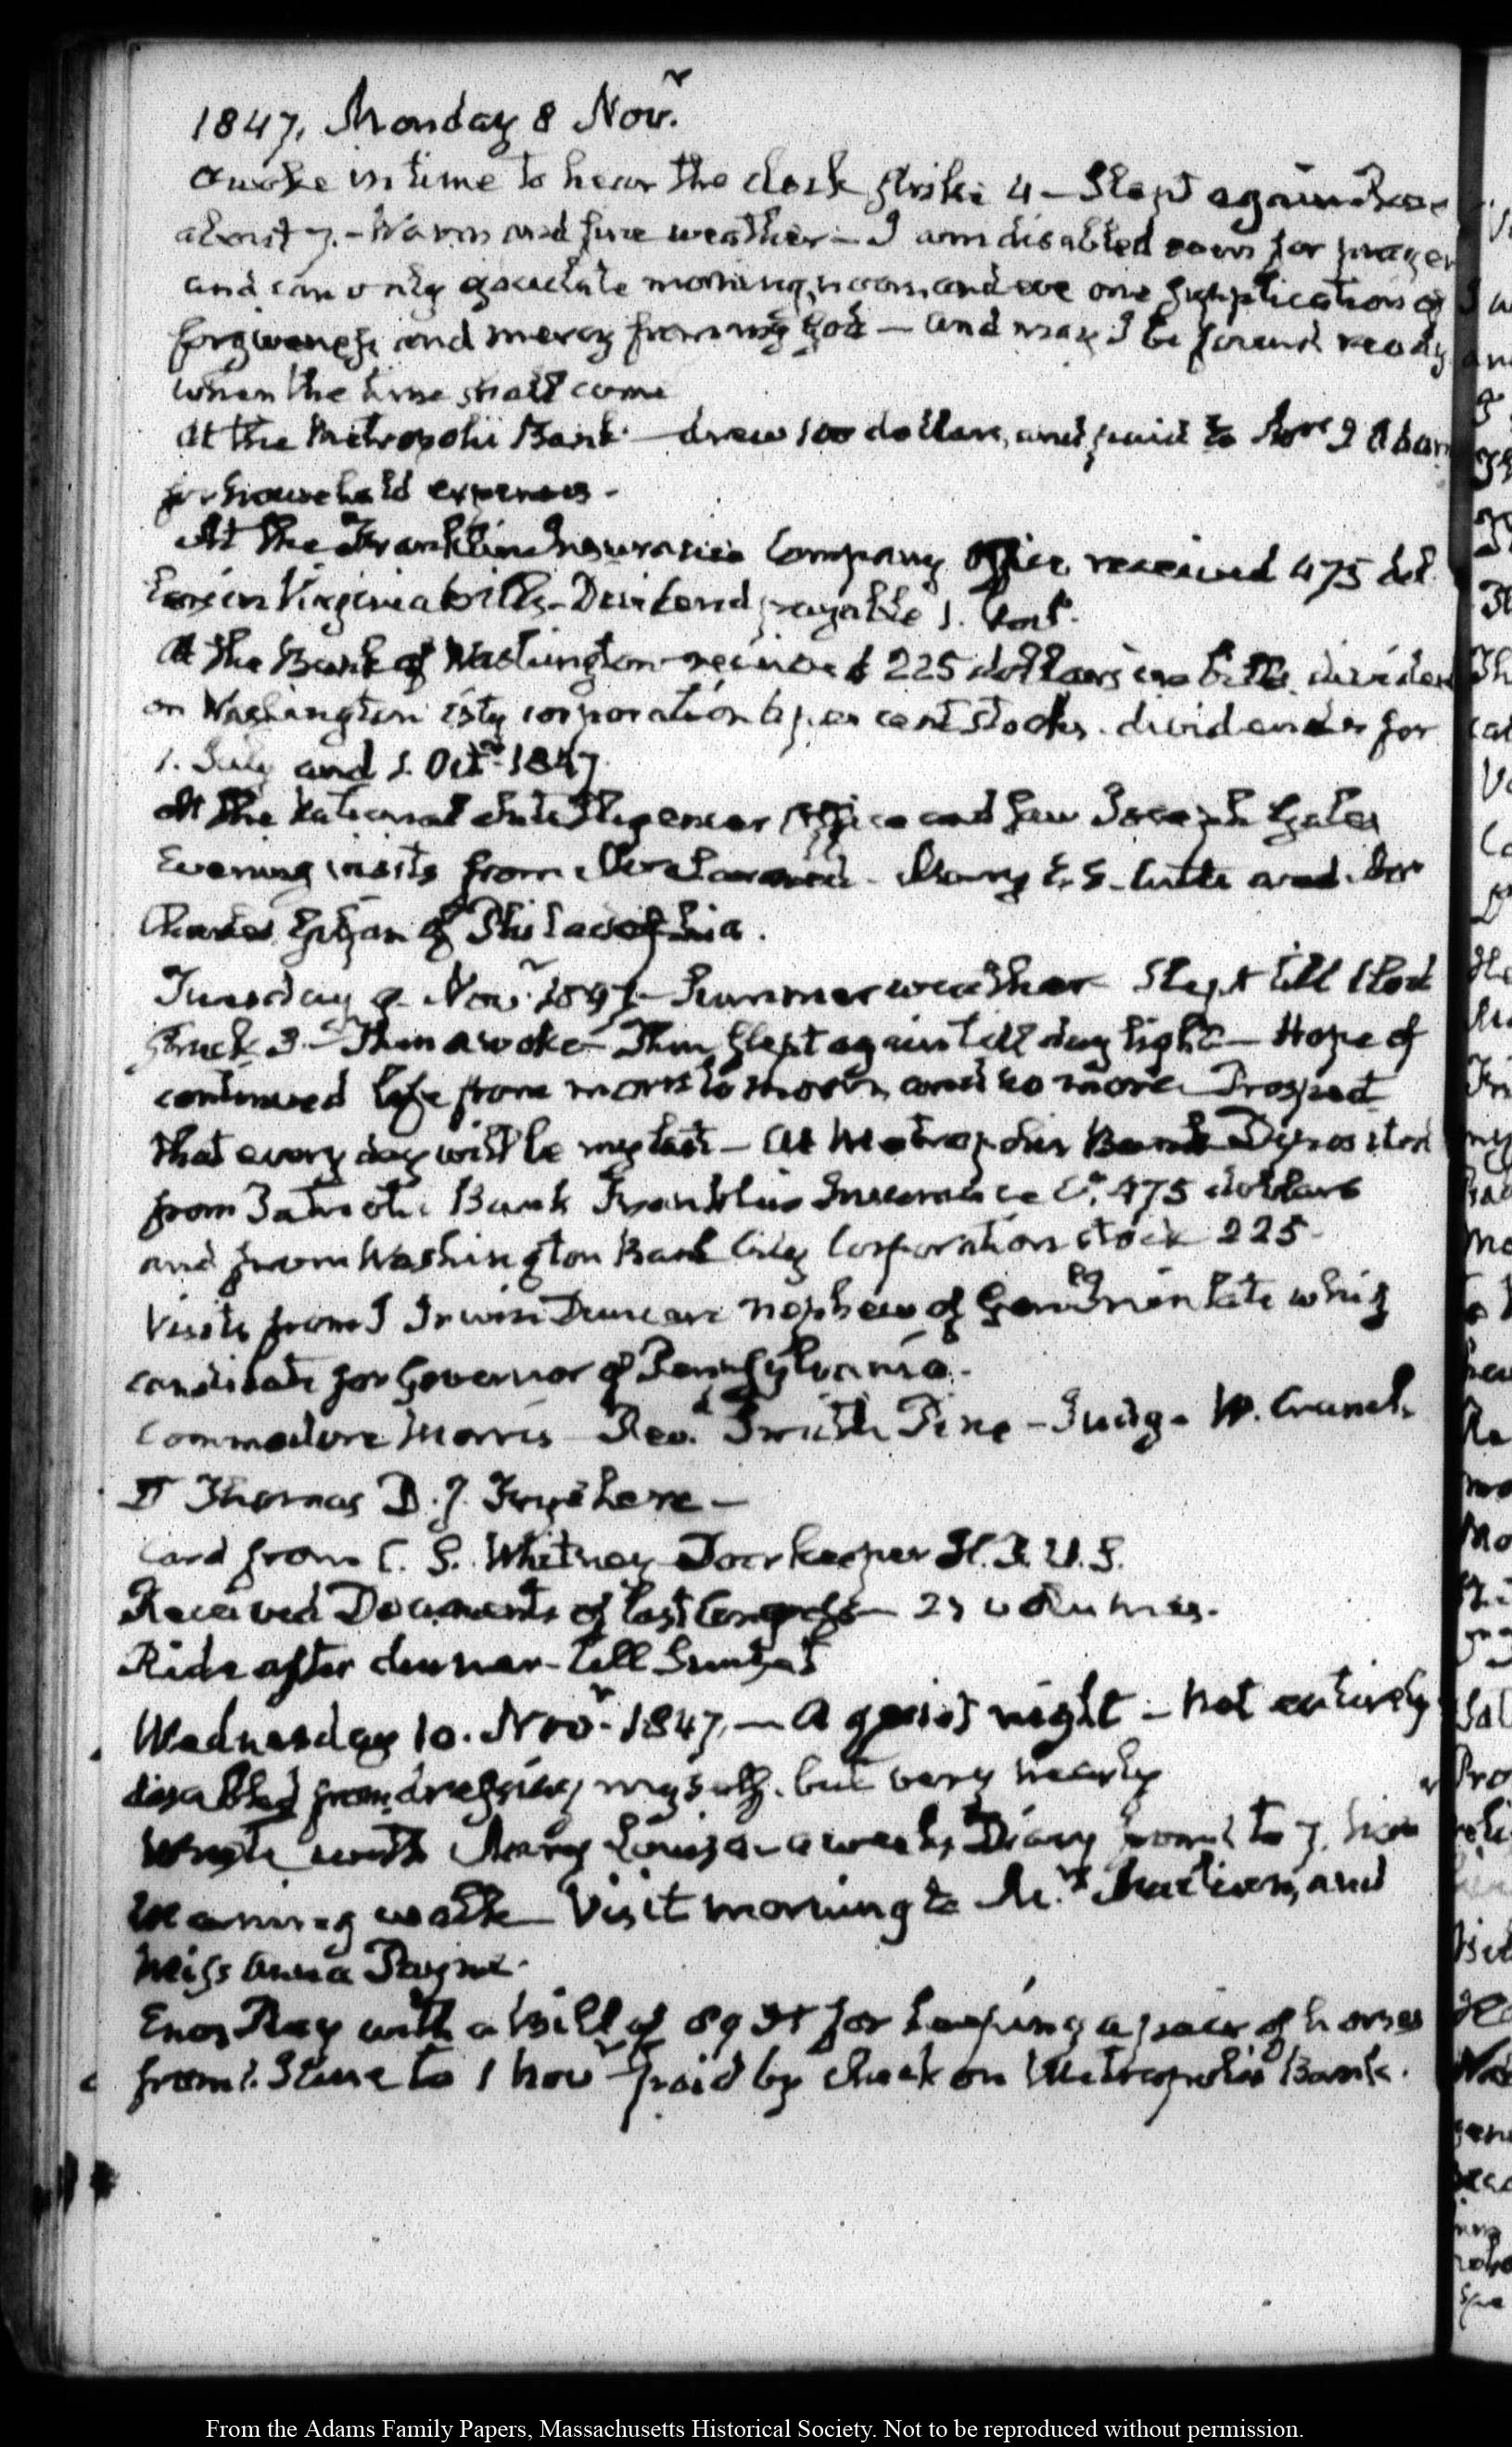 1847. Monday 8 Novr.
awoke in time to hear the clock strike 4 — Slept again Rose
about 7. — Warm and fine weather — I am disabled even for prayer
and can only ejaculate morning, noon, and eve one supplication of
forgiveness and mercy from my God — and may I be found ready
when the time shall come
At the Metropolis Bank — drew 100 dollars, and paid to Mrs L C Adams
for household expenses —
At the Franklin Insurance Company Office received 475 dol
in Virginia bills — Dividend payable 1.
At the Bank of Washington — received 225 dollars in bills, dividend
on Washington City corporation 6 per cent stocks. dividends for
1. July and 1. Octr 1847.
At the National Intelligencer Office and saw Joseph Gales
Evening visits from Mary E. S. and Mr
Charles of Philadelphia.
Tuesday 9. Novr. 1847 — Summer weather Slept till Clock
struck 3 — Then awoke — Then slept again till day light — Hope of
continued life from morn to morn, and no more. Prospect
that every day will be my last — At Metropolis Bank Deposited
from Patriotic Bank Franklin Insurance Co. 475 dollars
and from Washington Bank City Corporation stock 225 —
Visits from J Irwin Duncan nephew of Genl Irvin late whig
candidate for Governor of Pennsylvania. —
Commodore Morris — Revd. Smith Pyne — Judge W. Cranch
Dr Thomas D. J. Frye here —
Card from C. S. Whitney Doorkeeper H. R. U. S.
Received Documents of last Congress — volumes.
Ride after dinner — till Sunset
Wednesday 10. Novr. 1847. — A quiet night — not entirely
disabled from dressing myself. but very nearly
Wrote with Mary Louisa — a week's Diary from 1 to 7. Nov
Morning walk Visit morning to Mrs Madison, and
Miss Anna Payne.
Enos Ray with a bill of for keeping a pair of horses
from 1. June to 1 Novr — paid by check on Metropolis Bank.
From the Adams Family Papers, Massachusetts Historical Society. Not to be reproduced without permission.